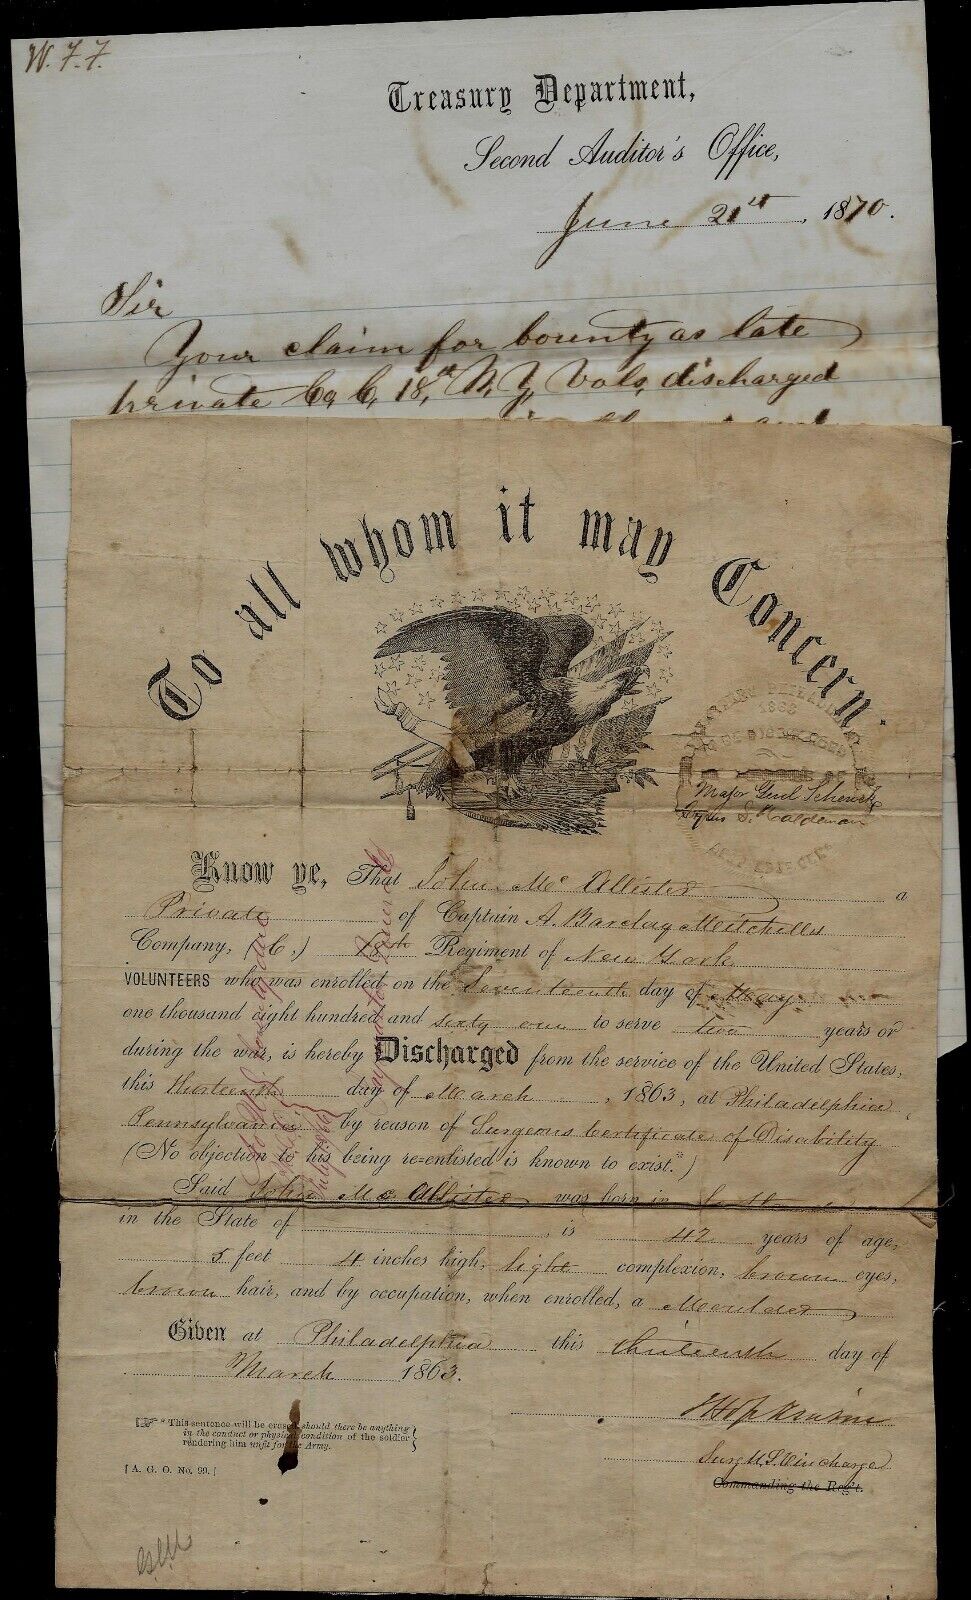 W. F. F.
Treasury Department,
Second Auditor's Office,
June 21st, 1870.
Sir
Your claim for bounty as late
private Co, C, 18th N. Y. Vols, discharged
To all whom it may Concern.
1863
DISCHARGED
Major Genl Schenck
S. Haldeman
Know ye, That John McAllister a
Private of Captain A. Barclay Mitchells
Company, (C,) 18th Regiment of New York
VOLUNTEERS who was enrolled on the Seventeenth day of May
one thousand eight hundred and sixty one to serve two years or
during the war, is hereby Discharged from the service of the United States,
this thirteenth day of March, 1863, at Philadelphia
Pennsylvania by reason of Surgeons Certificate of Disability
(No objection to his being re-enlisted is known to exist.*)
Said John McAllister was born in
in the State of , is 42 years of age,
5 feet 4 inches high, light complexion, brown eyes,
brown hair, and by occupation, when enrolled, a Moulder
Given at Philadelphia this thirteenth day of
March 1863.
* This sentence will be erased should there be anything
in the conduct or physical condition of the soldier
rendering him unfit for the Army.
[A. G. O. No. 99.]
Surg U.S. V in charge
Commanding the Reg't.